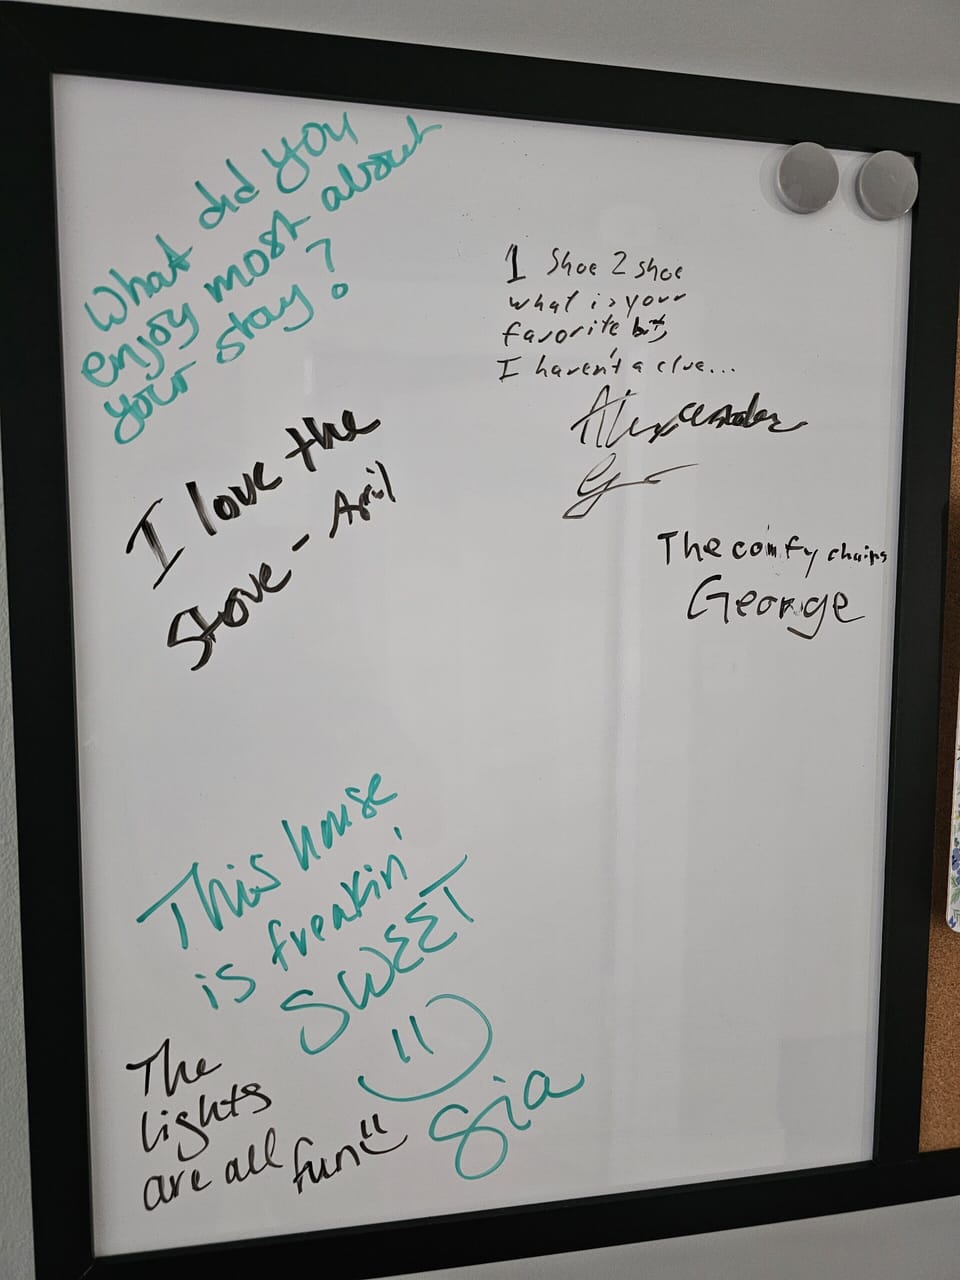 What did you
enjoy most about
your stay?
I love the
Stove - April
1 Shoe 2 shoe
what is your
favorite bit
I haven't a clue...
Alexander
The comfy chairs
George
This house
is freakin'
SWEET
Gia
The
lights
are all fun